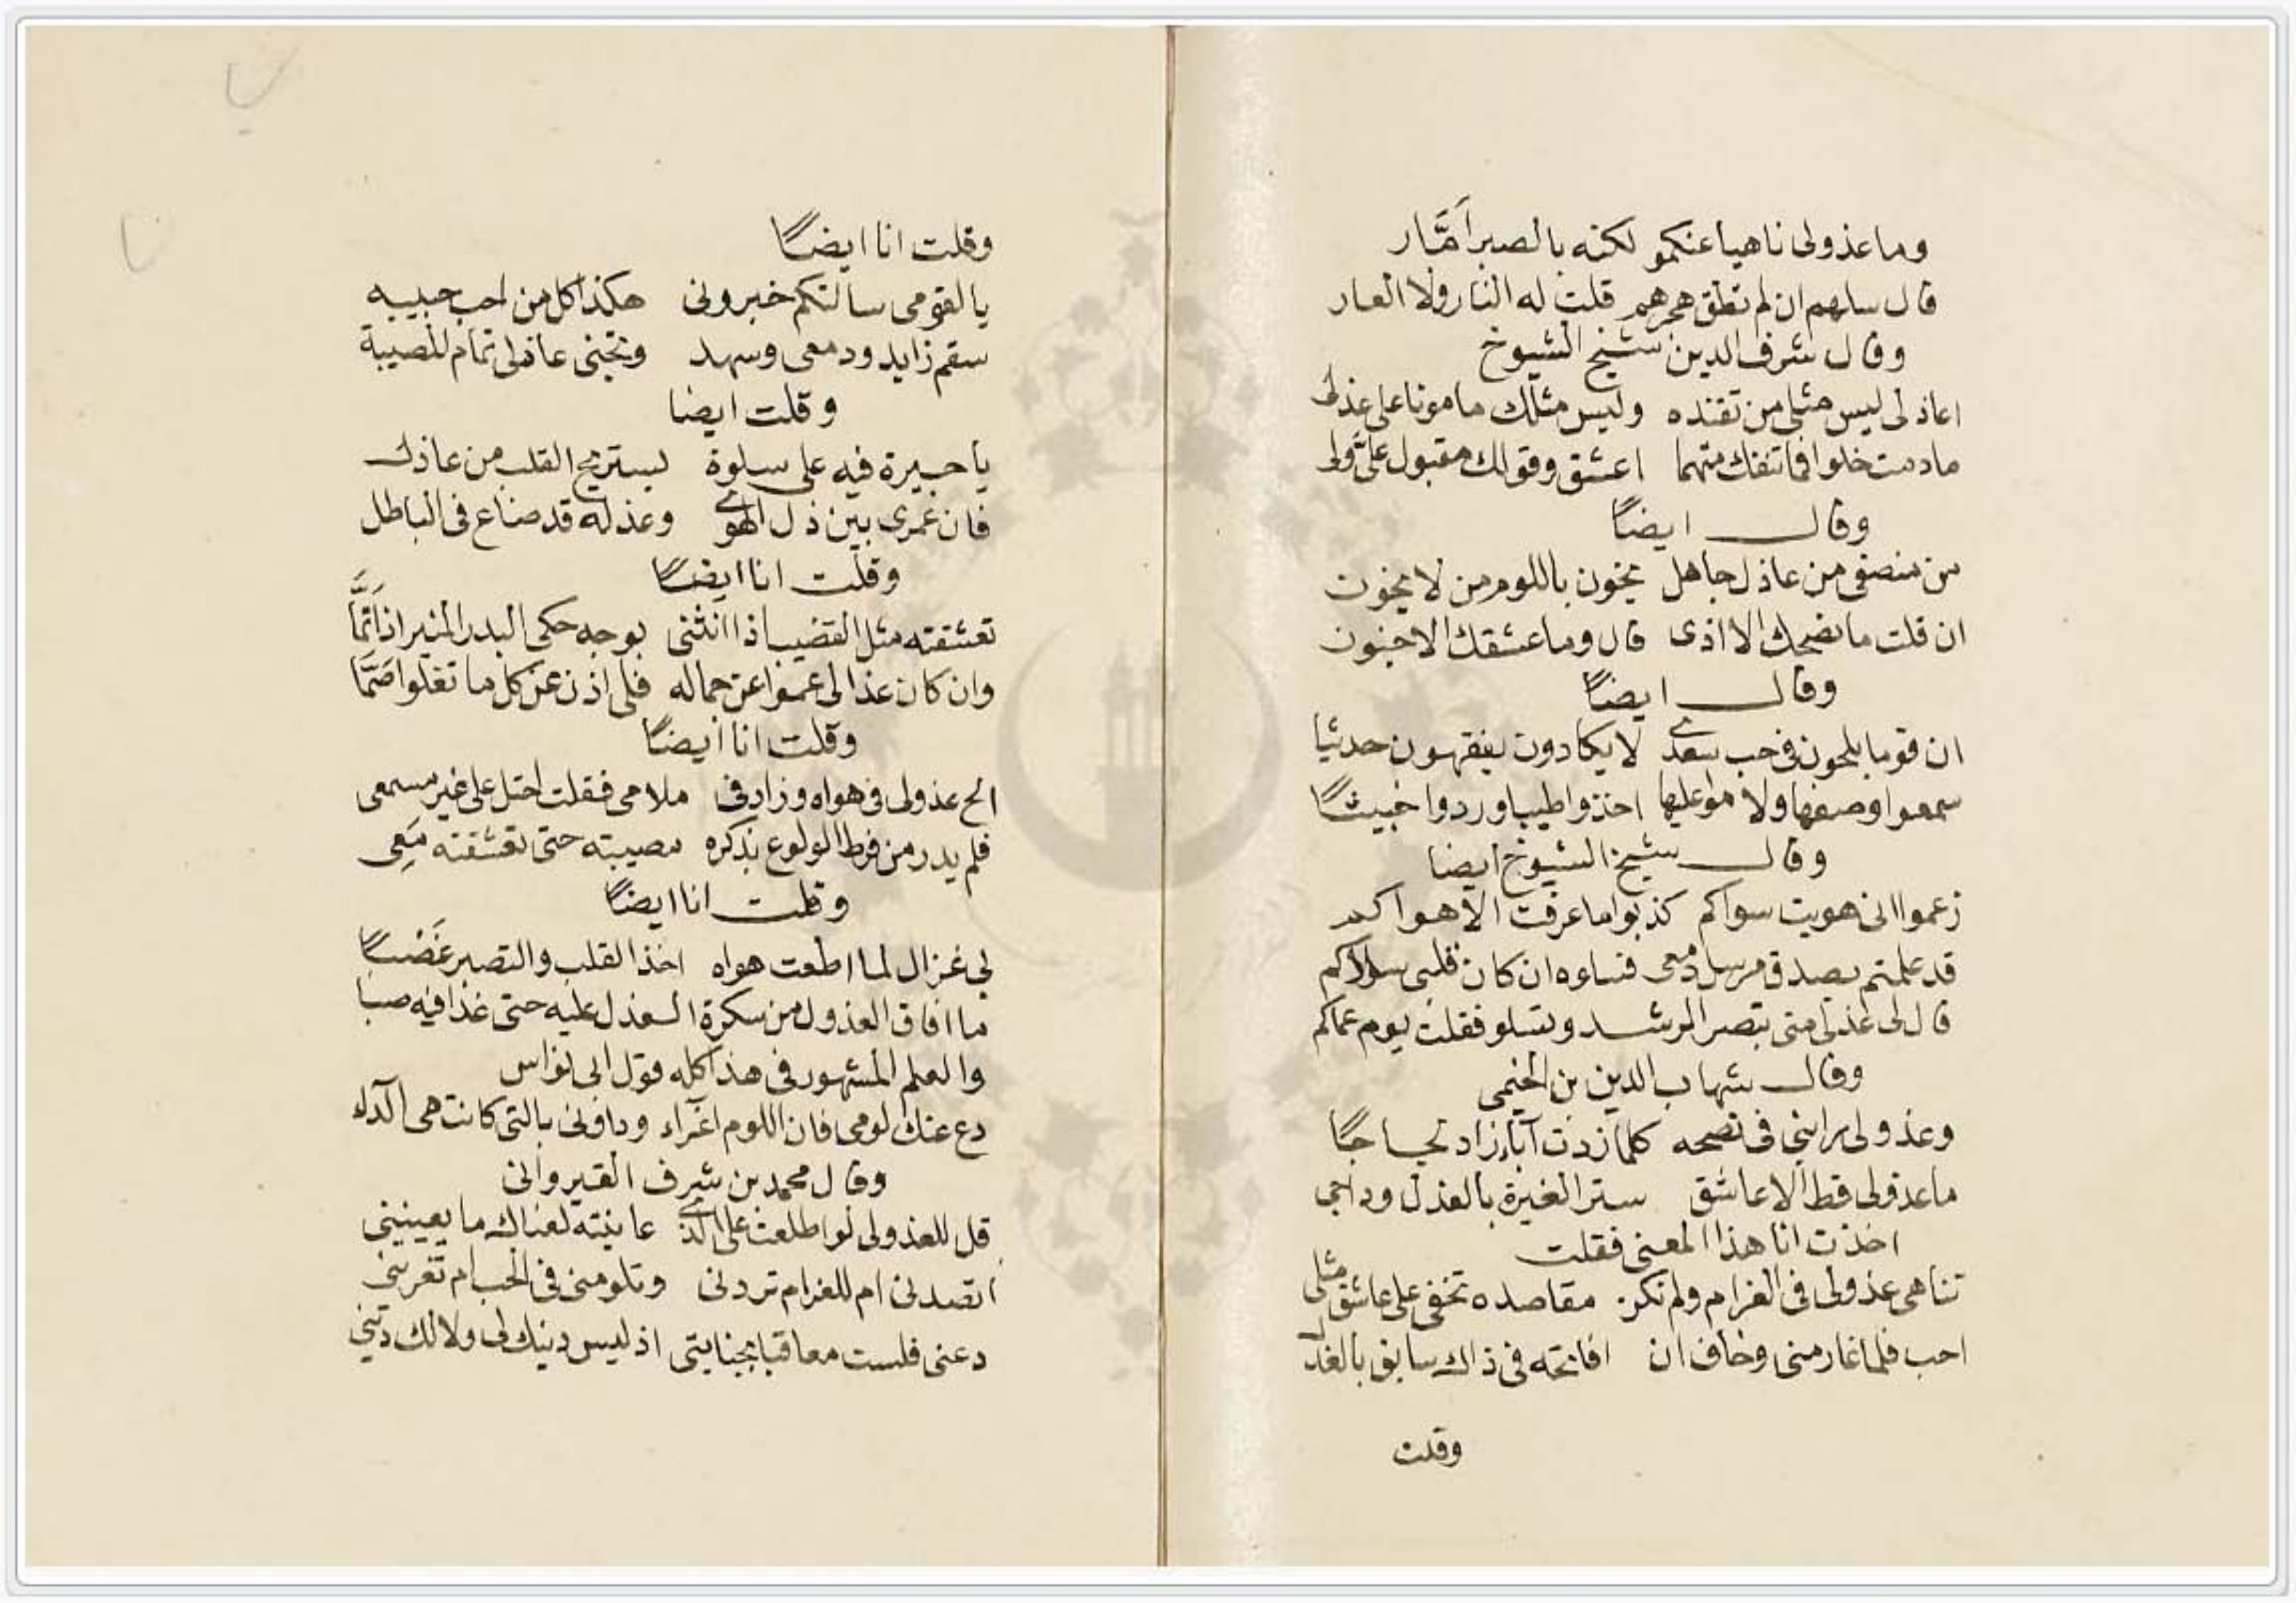 وما عذولى ناهيا عنكمو لكنه بالصبر أمَّار
قال سلهم ان لم تطق هجرهم قلت له النار ولا العار
وقال شرف الدين شيخ الشيوخ
اعاذلى ليس مثلى من تفنده وليس مثلك مامونا على عذلى
مادمت خلوا فما تنفك متهما اعشق وقولك مقبول علىَّ ولى
وقال ايضاً
من منصفى من عاذل جاهل يخون باللوم من لا يخون
ان قلت ما نصحك الا اذى قال وما عشقك الا جنون
وقال ايضاً
ان قوما يلحون فى حب سعدى لا يكادون يفقهون حديثا
سمعوا وصفها ولاموا عليها اخذوا طيبا وردوا خبيثاً
وقال شيخ الشيوخ ايضا
زعموا انى هويت سواكم كذبوا ما عرفت الا هواكم
قد علمتم بصدق مرسل دمعى فسلوه ان كان قلبى سلاكم
قال لى عذلى متى تبصر الرشد وتسلو فقلت يوم عماكم
وقال شهاب الدين بن الخيمى
وعذولى رابنى فى نصحه كلما زدت آباء زاد لجاجاً
ما عذولى قط الا عاشق ستر الغيرة بالعذل وداجى
اخذت انا هذا المعنى فقلت
تناهى عذولى فى الغرام ولم تكن مقاصده تخفى على عاشق مثلى
احب فلما غار منى وخاف ان افاتحه فى ذاك سابق بالعذل
وقلت
وقلت انا ايضاً
يا لقومى سالتكم خبرونى هكذا كل من احب حبيبه
سقم زايد ودمعى وسهد وتجنى عاذلى تمام المصيبة
وقلت ايضا
يا حيرة فيه على سلوة ليستريح القلب من عاذل
فان عمرى بين ذل الهوى وعذله قد ضاع فى الباطل
وقلت انا ايضاً
تعشقته مثل القضيب اذا انثنى بوجه حكى البدر المنير اذا تمَّا
وان كان عذالى عموا عن جماله فلى اذن عن كل ما نقلوا صَمَّا
وقلت انا ايضاً
الح عذولى فى هواه وزاد فى ملامى فقلت احتل على غير مسمعى
فلم يدر من فرط الولوع بذكره مصيبته حتى تعشقته مَعِى
وقلت انا ايضاً
لى غزال لما اطعت هواه اخذ القلب والتصبر غَصْباً
ما افاق العذول من سكرة العذل عليه حتى غدا فيه صبا
والعلم المشهور فى هذا كله قول ابى نواس
دع عنك لومى فان اللوم اغراء وداونى بالتى كانت هى الداء
وقال محمد بن شرف القيروانى
قل للعذولى لو اطلعت على الذى عاينته لعناك ما يعنينى
اتصدنى ام للغرام تردنى وتلومنى فى الحب ام تغرينى
دعنى فلست معاقبا بجنايتى اذ ليس دينك لى ولا لك دينى